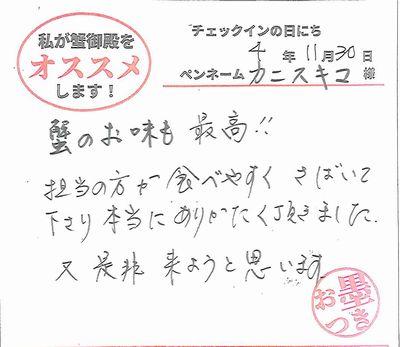 私が蟹御殿を
オススメ
します！
チェックインの日にち
4 年 11月 30日
ペンネーム カニスキコ 様
蟹のお味も 最高!!
担当の方が 食べやすく さばいて
下さり 本当に ありがたく頂きました.
又 是非 来ようと思います
お墨つき